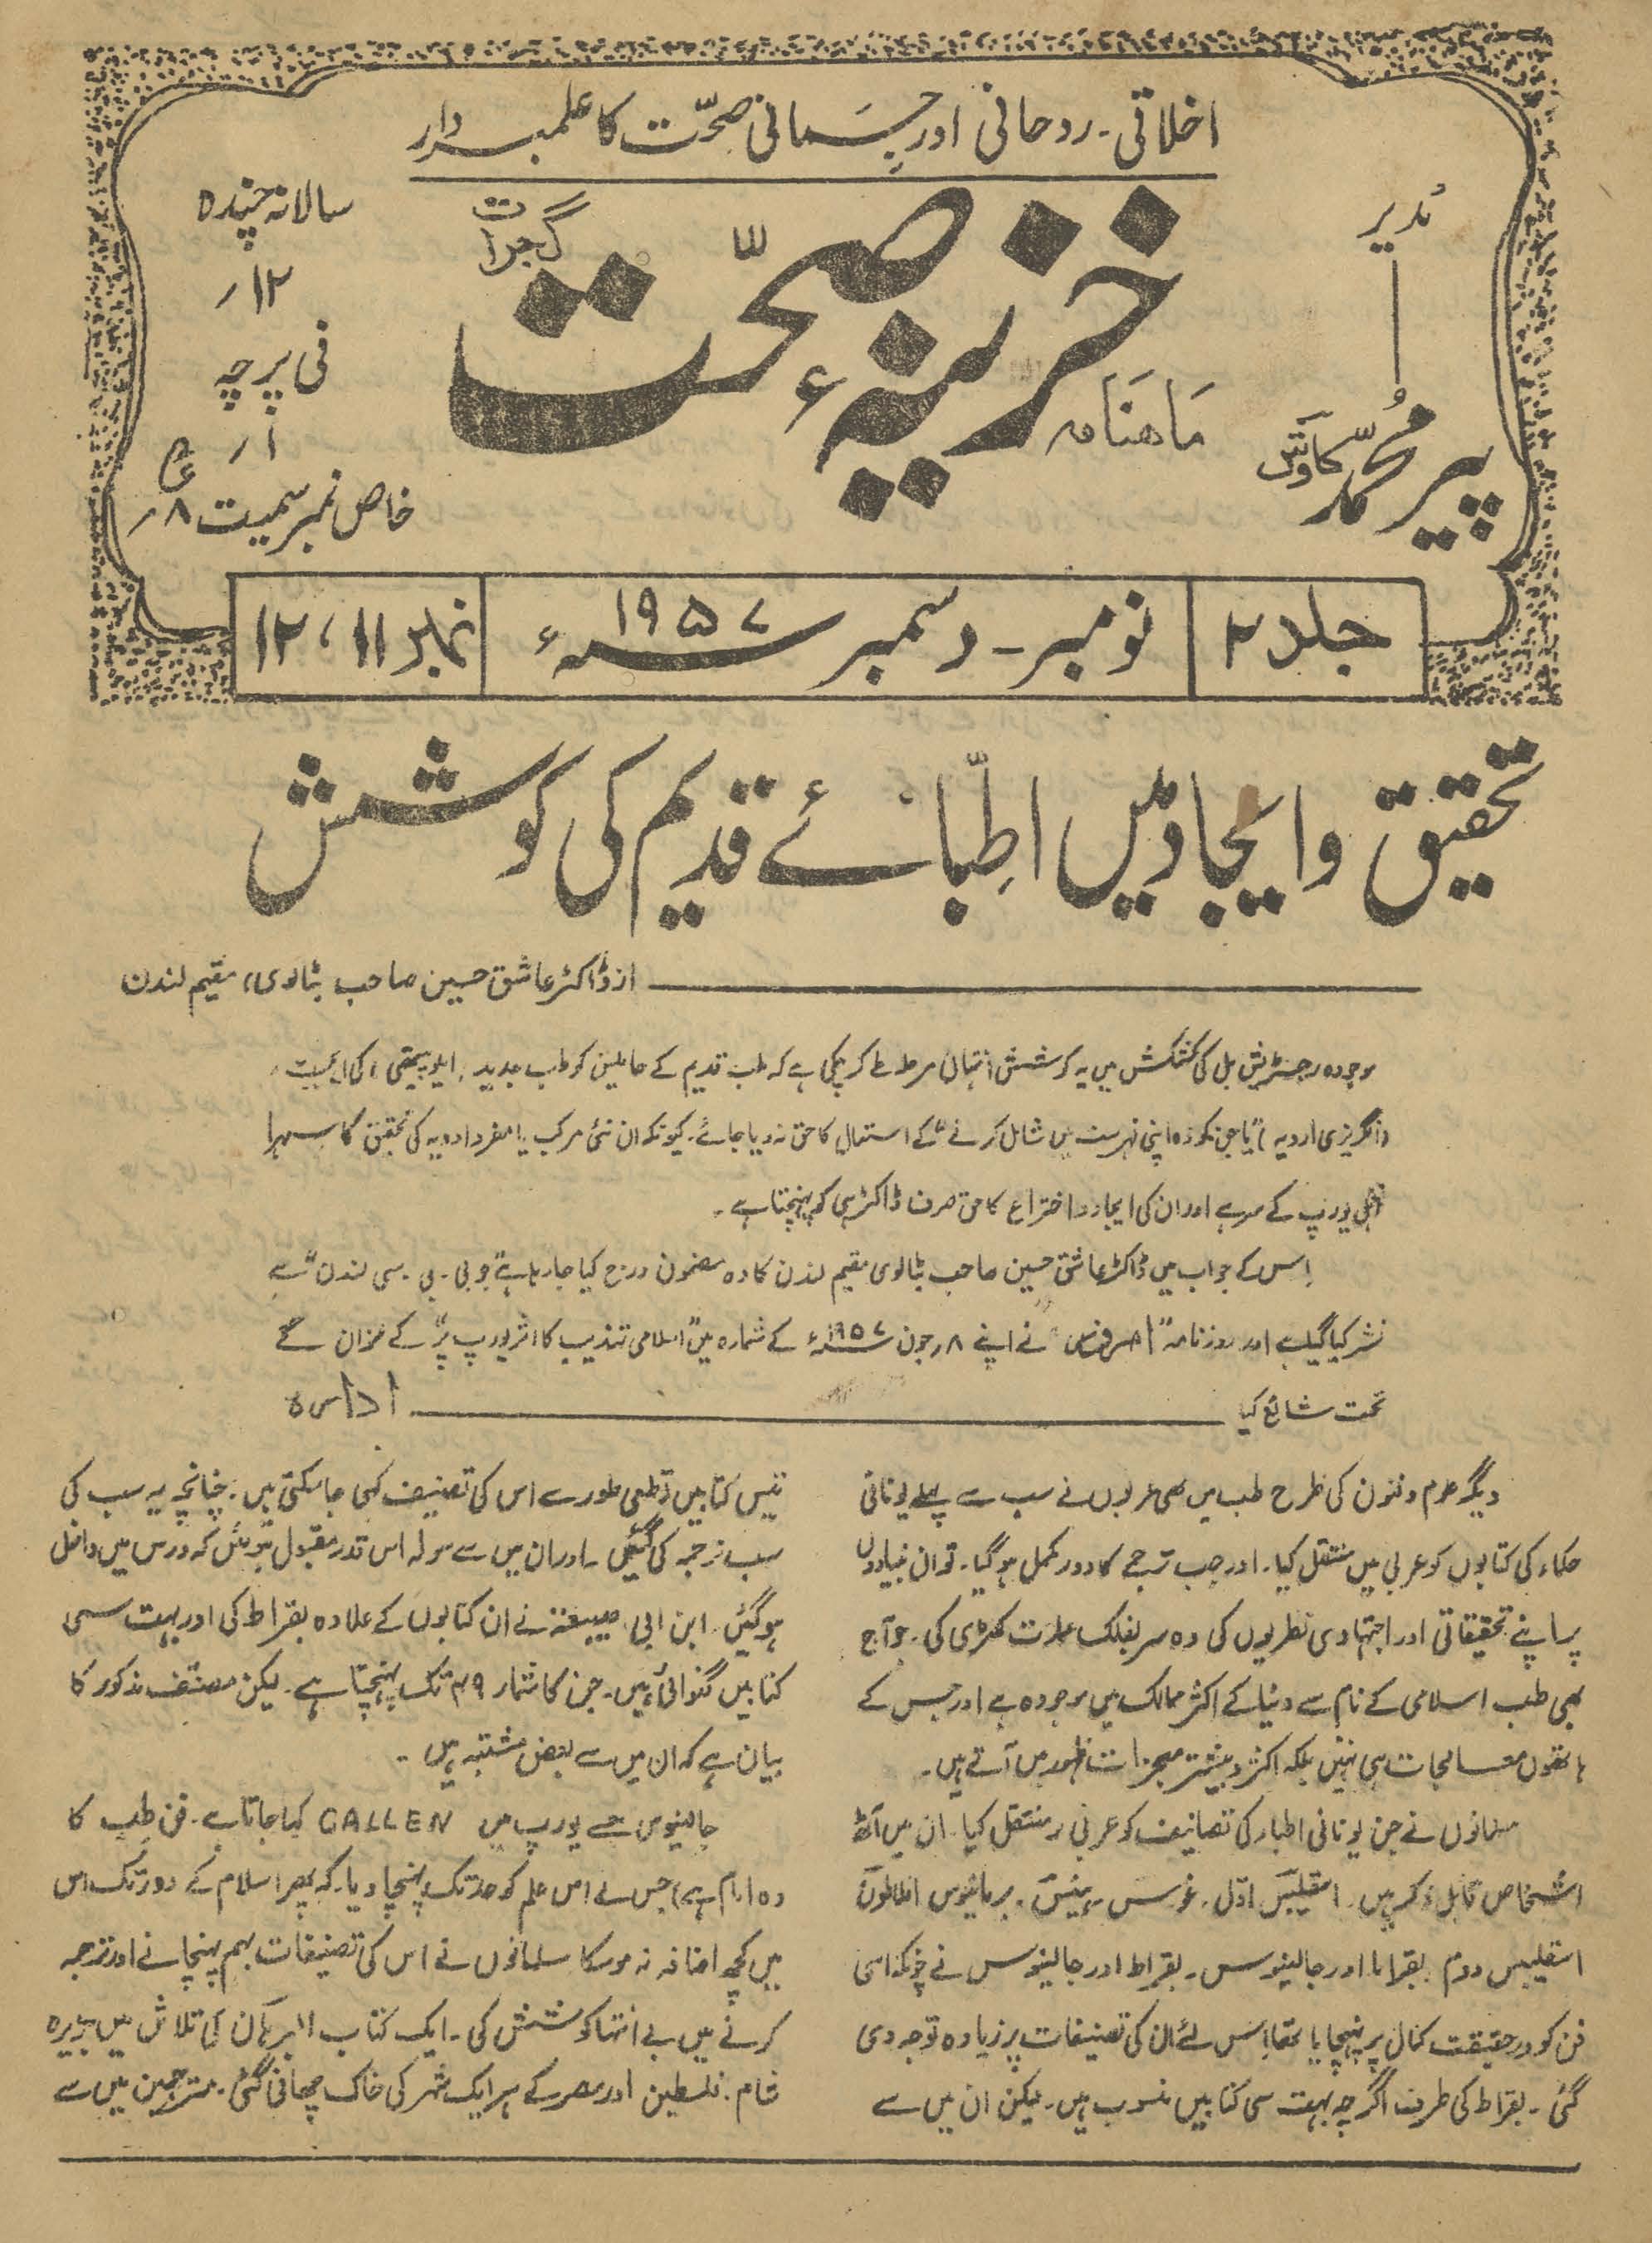 اخلاقی۔ روحانی اور جسمانی صحّت کا علمبردار
مُدیر
پیر محمّد کاوش
ماہنامہ
خزینۂ صحّت
گجرات
سالانہ چندہ
۱۲ /
فی پرچہ
۱ /
خاص نمبر سمیت ۸ /
جلد ۲
نومبر۔ دسمبر ۱۹۵۷ء
نمبر ۱۱، ۱۲
تحقیق و ایجاد میں اطبّائے قدیم کی کوشش
از ڈاکٹر عاشق حسین صاحب بٹالوی، مقیم لندن
موجودہ رجسٹریشن بل کی کشمکش میں یہ کوشش انتہائی مرحلہ طے کر چکی ہے کہ طب قدیم کے حاملین کو طب جدید، ایلوپیتھی، کی
(انگریزی ادویہ) "یا جن کو وہ اپنی فہرست میں شامل کرنے" کے استعمال کا حق نہ دیا جائے۔ کیونکہ ان نئی مرکب یا مفرد ادویہ کی تحقیق کا سہرا
اہل یورپ کے سر ہے اور ان کی ایجاد و اختراع کا حق صرف ڈاکٹر ہی کو پہنچتا ہے۔
اِس کے جواب میں ڈاکٹر عاشق حسین صاحب بٹالوی مقیم لندن کا وہ مضمون درج کیا جا رہا ہے "جو بی۔ بی۔ سی لندن" سے
نشر کیا گیا ہے اور روزنامہ نے اپنے ۸؍ جون ۱۹۵۷ء کے شمارہ میں "اسلامی تہذیب کا اثر یورپ پر" کے عنوان کے
تحت شائع کیا ادارہ
دیگر علوم و فنون کی طرح طب میں بھی عربوں نے سب سے پہلے یونانی
حکماء کی کتابوں کو عربی میں منتقل کیا۔ اور جب ترجمے کا دور مکمل ہو گیا۔ تو ان بنیادوں
پر اپنے تحقیقاتی اور اجتہادی نظریوں کی وہ سر بفلک عمارت کھڑی کی۔ جو آج
بھی طب اسلامی کے نام سے دنیا کے اکثر ممالک میں موجودہ ہے اور جس کے
ہاتھوں معالجات ہی نہیں بلکہ اکثر و بیشتر معجزات ظہور میں آتے ہیں۔
مسلمانوں نے جن یونانی اطباء کی تصانیف کو عربی منتقل کیا۔ ان میں آٹھ
اشخاص قابل ذکر ہیں۔ اسقلیبس اوّل۔ غورس۔ مینس۔ برمانیوس افلاطون
اسقلیبس دوم۔ بقراط اور جالینوس۔ بقراط اور جالینوس نے چونکہ اس
فن کو درحقیقت کمال پر پہنچایا تھا اِس لئے ان کی تصنیفات پر زیادہ توجہ دی
گئی۔ بقراط کی طرف اگرچہ بہت سی کتابیں منسوب ہیں۔ لیکن ان میں سے
تیس کتابیں قطعی طور سے اس کی تصنیف کہی جا سکتی ہیں۔ چنانچہ یہ سب کی
سب ترجمہ کی گئیں۔ اور ان میں سے سولہ اس قدر مقبول ہوئیں کہ درس میں داخل
ہو گئیں۔ ابن ابی صیبعتہ نے ان کتابوں کے علاوہ بقراط کی اور بہت سی
کتابیں گنوائی ہیں۔ جن کا شمار ۴۹ تک پہنچتا ہے۔ لیکن مصنّف مذکور کا
بیان ہے کہ ان میں سے بعض مشتبہ ہیں۔
جالینوس جسے یورپ میں GALLEN کہا جاتا ہے۔ فنِ طِب کا
وہ امام ہے) جس نے اس علم کو حد تک پہنچا دیا۔ کہ پھر اسلام کے دور تک اس
میں کچھ اضافہ نہ ہو سکا مسلمانوں نے اس کی تصنیفات بہم پہنچانے اور ترجمہ
کرنے میں بے انتہا کوشش کی۔ ایک کتاب البرہان کی تلاش میں جزیرہ
شام۔ فلسطین اور مصر کے ہر ایک شہر کی خاک چھانی گئی۔ مترجمین میں سے